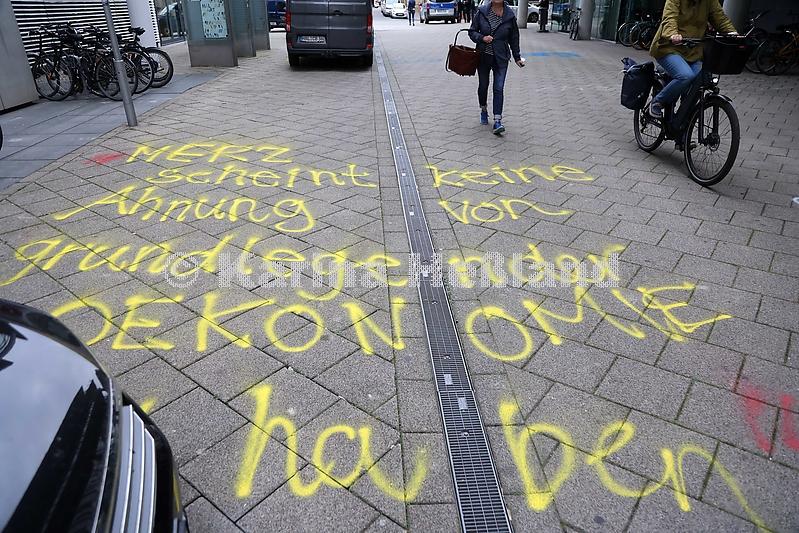 MERZ
scheint keine
Ahnung von
grundlegender
OEKONOMIE
haben